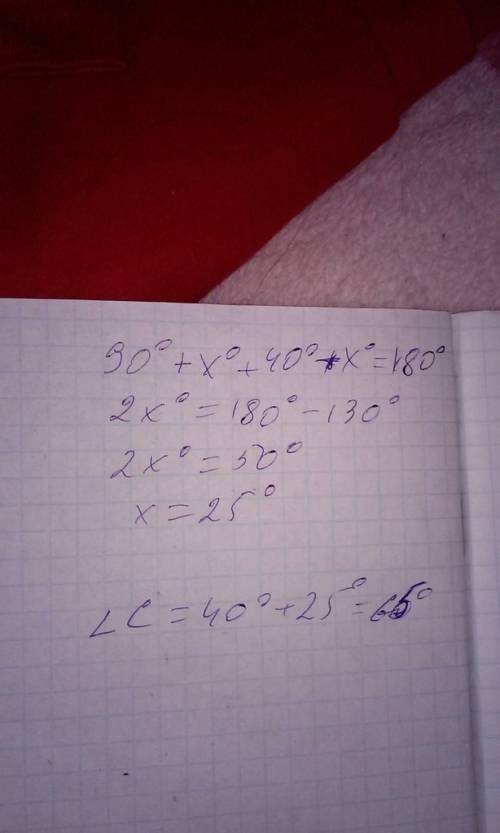 90° + x° + 40° + x° = 180°
2x° = 180° - 130°
2x° = 50°
x = 25°
∠C = 40° + 25° = 65°